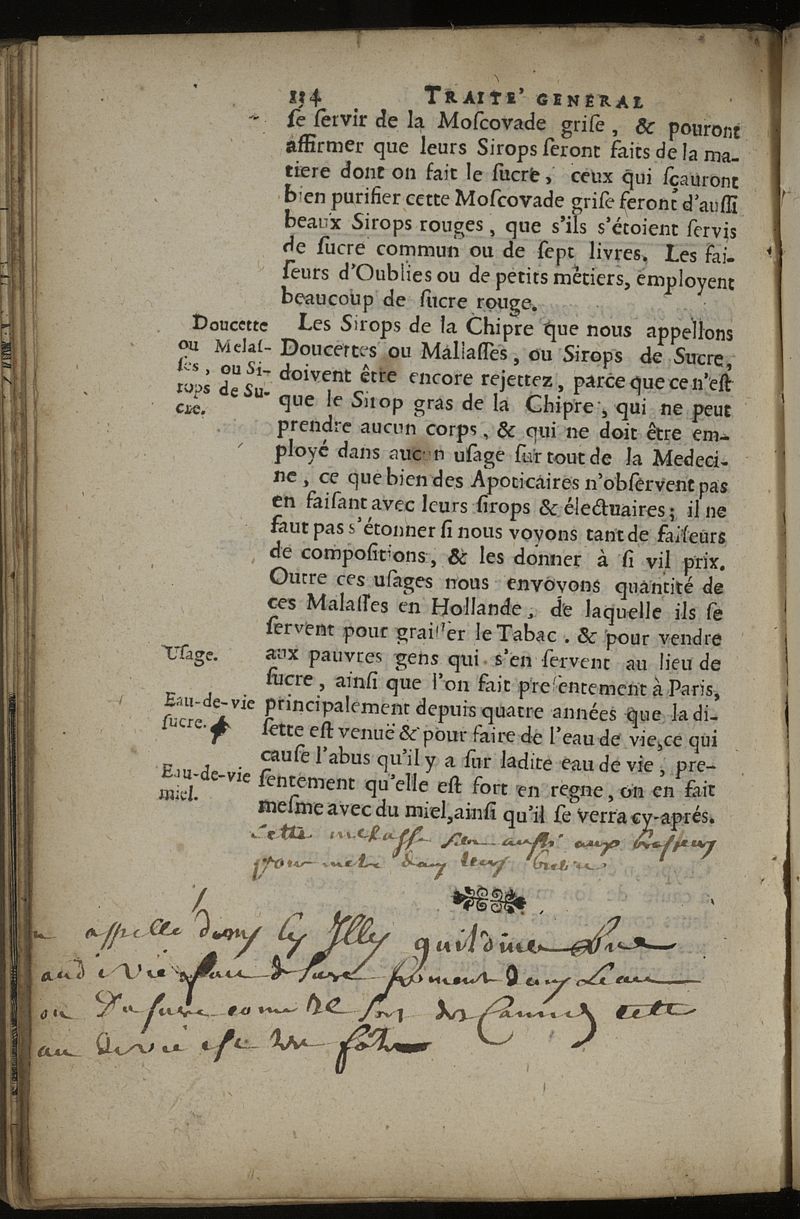 114 TRAITE' GENERAL
ſe ſervir de la Moſcovade griſe, & pouront
affirmer que leurs Sirops ſeront faits de la ma-
tiere dont on fait le ſucre, ceux qui ſçauront
bien purifier cette Moſcovade griſe feront d'auſſi
beaux Sirops rouges, que s'ils s'étoient ſervis
de ſucre commun ou de ſept livres. Les fai-
ſeurs d'Oublies ou de petits métiers, employent
beaucoup de ſucre rouge.
Doucette
ou Melaſ-
ſes, ou Si-
rops de Su-
cre.
Les Sirops de la Chipre que nous appellons
Doucettes ou Mallaſſes, ou Sirops de Sucre,
doivent être encore rejettez, parce que ce n'eſt
que le Sirop gras de la Chipre, qui ne peut
prendre aucun corps, & qui ne doit être em-
ployé dans aucun uſage ſur tout de la Medeci-
ne, ce que bien des Apoticaires n'obſervent pas
en faiſant avec leurs ſirops & électuaires; il ne
faut pas s'étonner ſi nous voyons tant de faiſeurs
de compoſitions, & les donner à ſi vil prix.
Outre ces uſages nous envoyons quantité de
ces Malaſſes en Hollande, de laquelle ils ſe
ſervent pour graiſſer le Tabac. & pour vendre
Uſage.
aux pauvres gens qui s'en ſervent au lieu de
ſucre, ainſi que l'on fait preſentement à Paris,
Eau-de-vie
ſucre.
principalement depuis quatre années que la di-
ſette eſt venuë & pour faire de l'eau de vie, ce qui
cauſe l'abus qu'il y a ſur ladite eau de vie, pre-
Eau-de-vie
miel.
ſentement qu'elle eſt fort en regne, on en fait
meſme avec du miel, ainſi qu'il ſe verra cy-aprés.
Cette melaſſe ſert auſſi aux braſſeurs
pour metre dans leurs bieres
appelle dans les Illes guildive une
eau de vie
ou des Cannes cette
eau de vie eſt forte